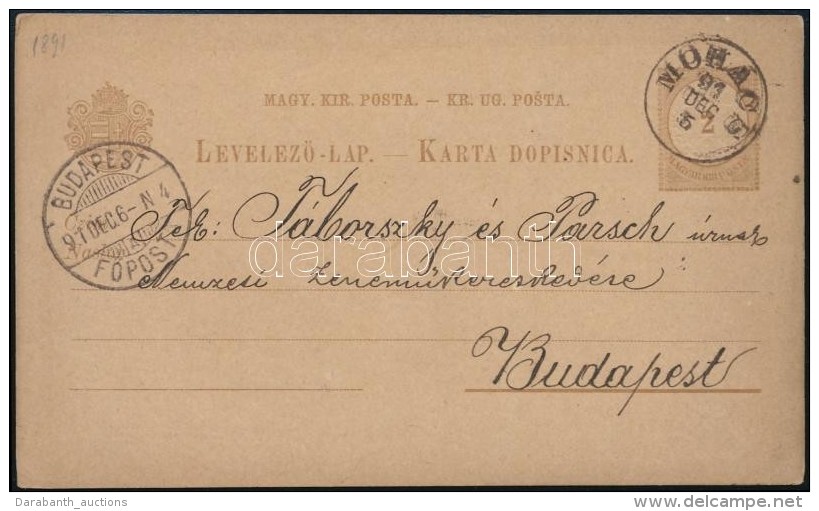 1891
MAGY. KIR. POSTA. — KR. UG. POŠTA.
LEVELEZŐ-LAP. — KARTA DOPISNICA.
MOHÁCS
91
DEC
5
2
BUDAPEST
91 DEC. 6 - N 4
FŐPOST
Tek: Táborszky és Parsch úrnak
Nemzeti Zeneműkereskedése
Budapest
darabanth
Darabanth_auctions
delcampe.net